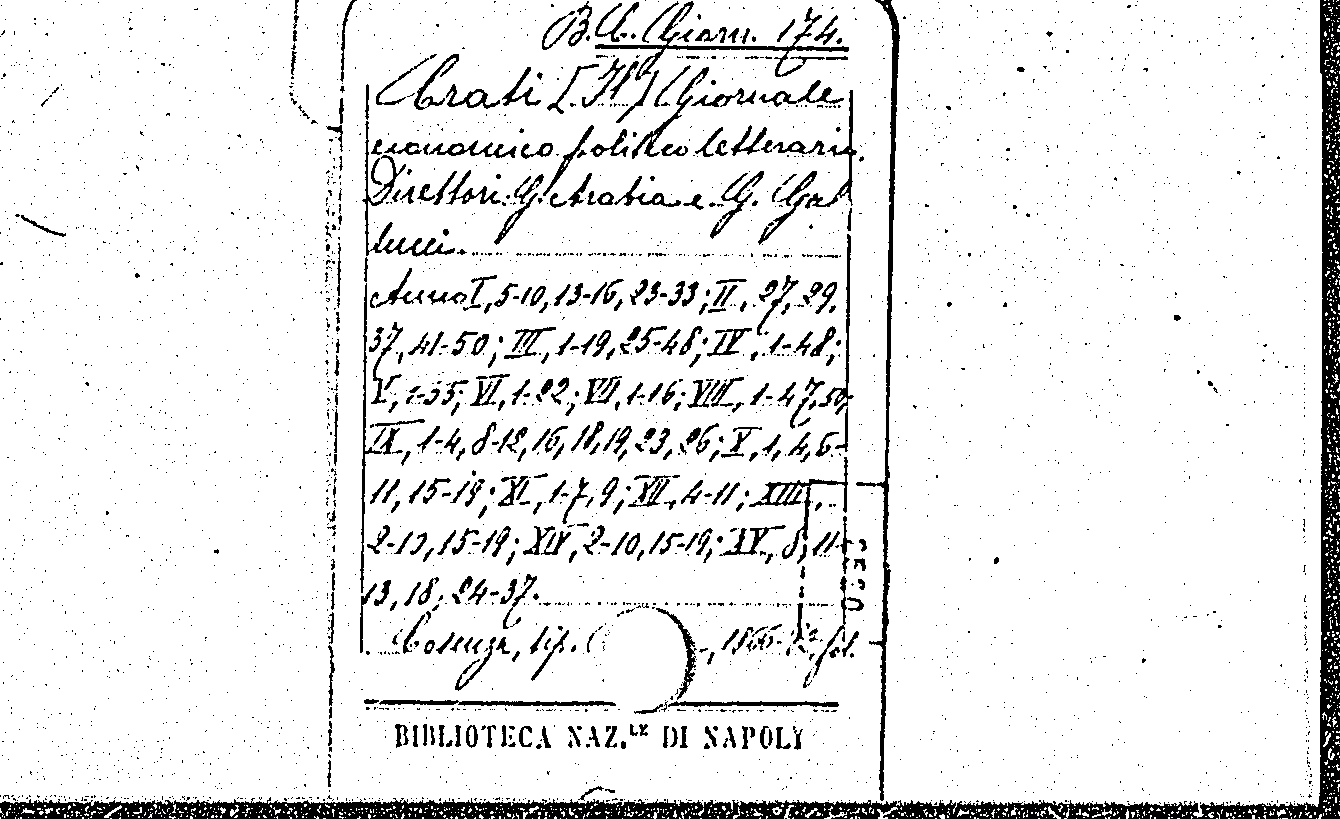 B.C. Giorn. 174.
Crati [Il] Giornale
economico politico letterario.
Direttori G. Arabia e G. Gal
lucci.
Anno I, 5-10, 13-16, 23-33; II, 27, 29,
37, 41-50; III, 1-19, 25-48; IV, 1-48;
V, 1-35; VI, 1-22; VII, 1-16; VIII, 1-47, 50;
IX, 1-4, 8-12, 16, 18, 19, 23, 26; X, 1, 4, 6-
11, 15-19; XI, 1-7, 9; XII, 4-11; XIII,
2-13, 15-19; XIV, 2-10, 15-19; XV, 8, 11-
13, 18, 24-37.
Cosenza, tip. , 1866- fol.
BIBLIOTECA NAZ.LE DI NAPOLI